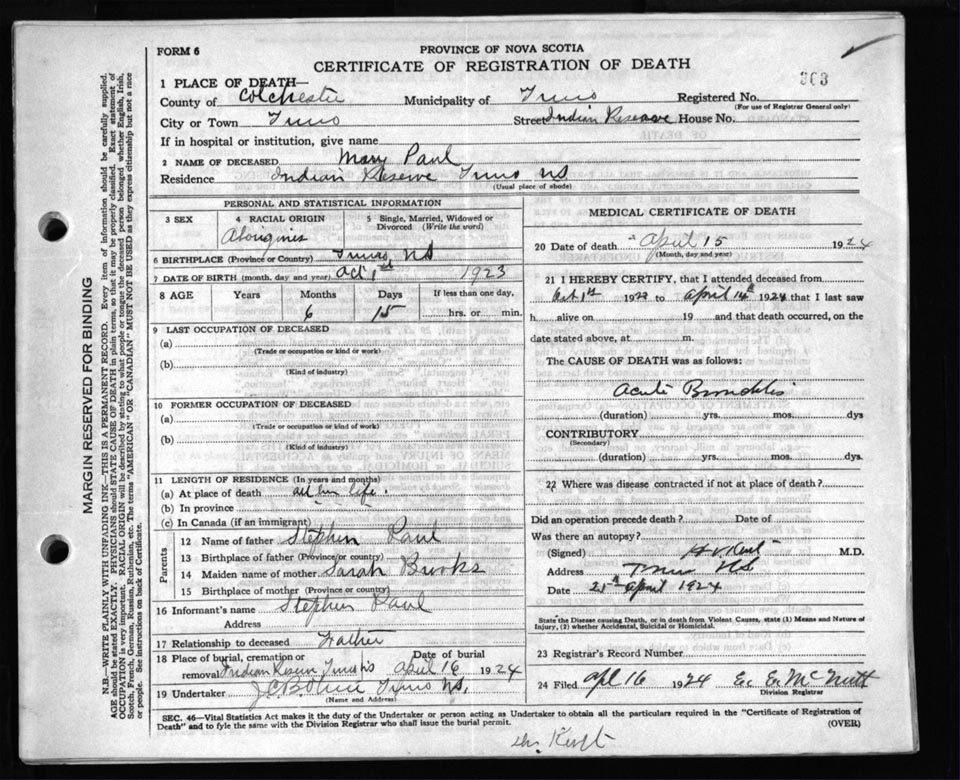 FORM 6
PROVINCE OF NOVA SCOTIA
CERTIFICATE OF REGISTRATION OF DEATH
363
1 PLACE OF DEATH—
County of Colchester Municipality of Truro Registered No.
(For use of Registrar General only)
City or Town Truro Street Indian Reserve House No.
If in hospital or institution, give name
2 NAME OF DECEASED Mary Paul
Residence Indian Reserve Truro NS
(Usual place of abode)
PERSONAL AND STATISTICAL INFORMATION
3 SEX 4 RACIAL ORIGIN 5 Single, Married, Widowed or Divorced (Write the word)
Aborigines
6 BIRTHPLACE (Province or Country) Truro, NS
7 DATE OF BIRTH (month, day and year) Oct 1st 1923
8 AGE Years Months Days If less than one day,
6 15 hrs. or min.
9 LAST OCCUPATION OF DECEASED
(a)
(Trade or occupation or kind or work)
(b)
(Kind of industry)
10 FORMER OCCUPATION OF DECEASED
(a)
(Trade or occupation or kind of work)
(b)
(Kind of industry)
11 LENGTH OF RESIDENCE (In years and months)
(a) At place of death all life.
(b) In province
(c) In Canada (if an immigrant)
Parents
12 Name of father Stephen Paul
13 Birthplace of father (Province or country)
14 Maiden name of mother Sarah Brooks
15 Birthplace of mother (Province or country)
16 Informant's name Stephen Paul
Address
17 Relationship to deceased Father
18 Place of burial, cremation or removal Indian Reserve Truro NS Date of burial April 16 1924
19 Undertaker Truro NS.
(Name and Address)
MEDICAL CERTIFICATE OF DEATH
20 Date of death April 15 1924
(Month, day and year)
21 I HEREBY CERTIFY, that I attended deceased from
Oct 1st 19 to April 14th 1924 that I last saw
h alive on 19 and that death occurred, on the
date stated above, at m.
The CAUSE OF DEATH was as follows:
Acute Bronchitis
(duration) yrs. mos. dys
CONTRIBUTORY
(Secondary)
(duration) yrs. mos. dys.
22 Where was disease contracted if not at place of death?
Did an operation precede death? Date of
Was there an autopsy?
(Signed) H V Kent M.D.
Address Truro NS
Date April 1924
State the Disease causing Death, or in death from Violent Causes, state (1) Means and Nature of
Injury, (2) whether Accidental, Suicidal or Homicidal.
23 Registrar's Record Number
24 Filed Apl 16 1924 McNutt
Division Registrar
SEC. 46—Vital Statistics Act makes it the duty of the Undertaker or person acting as Undertaker to obtain all the particulars required in the "Certificate of Registration of
Death" and to fyle the same with the Division Registrar who shall issue the burial permit.
(OVER)
MARGIN RESERVED FOR BINDING
N.B.—WRITE PLAINLY WITH UNFADING INK—THIS IS A PERMANENT RECORD. Every item of information should be carefully supplied.
AGE should be stated EXACTLY. PHYSICIANS should STATE CAUSE OF DEATH in plain terms, so that it may be properly classified. Exact statement of
OCCUPATION is very important. RACIAL ORIGIN will be described by stating to what people or tongue the deceased person belonged whether English, Irish,
Scotch, French, German, Russian, Ruthenian, etc. The terms "AMERICAN" OR "CANADIAN" MUST NOT BE USED as they express citizenship but not a race
or people. See instructions on back of Certificate.